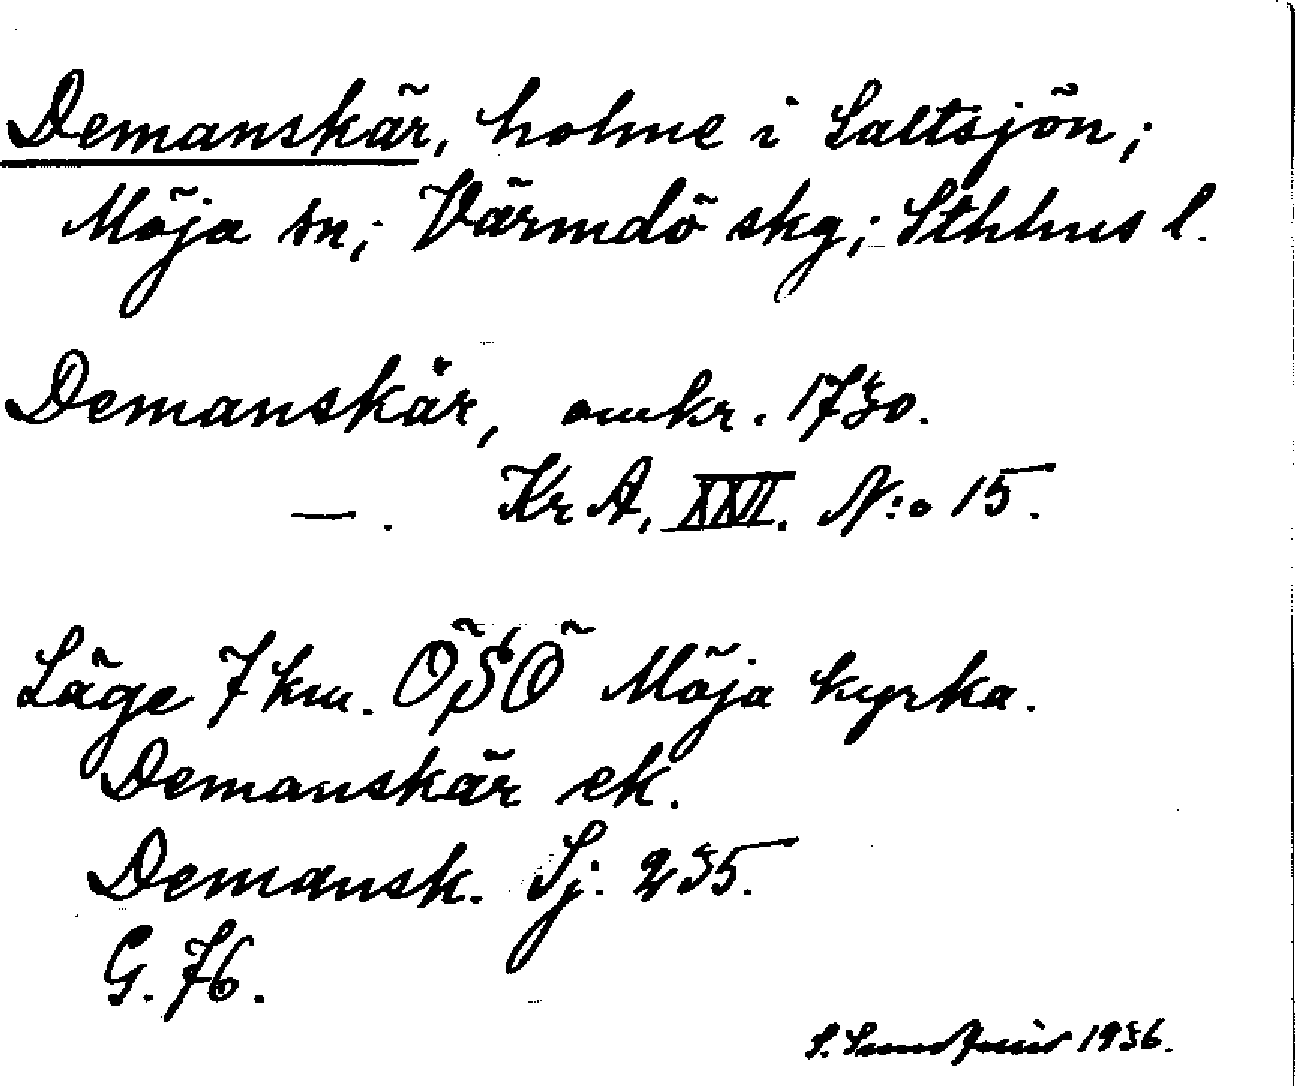 Demanskär, holme i Saltsjön;
Möja sn; Värmdö skg; Sthlms l.
Demanskår, omkr. 1730.
—. Kr A, XXVI. N:o 15.
Läge 7 km. ÖSÖ Möja kyrka.
Demanskär ek.
Demansk. Sj. 235.
G. 76.
S. 1936.